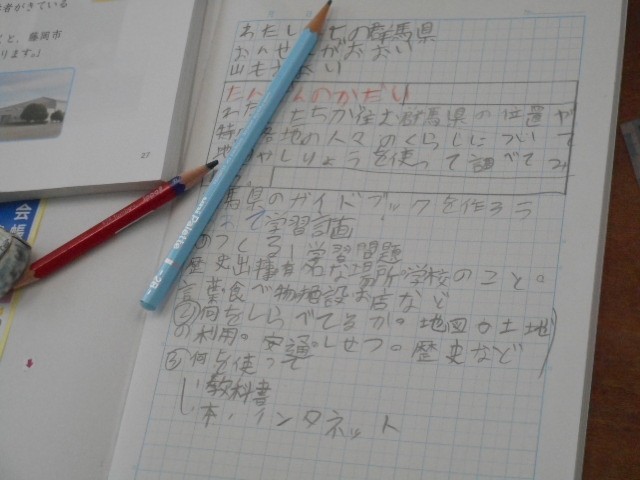 者がきている
く と、藤岡市
ります。」
27
わたしたちの群馬県
おんせんがおおい
山もおおい
たんげんのかだい
わたしたちが住む群馬県の位置や
特 各地の人々のくらしについて
地 やしりょうを使って調べてみ
馬県のガイドブックを作ろう
て学習計画
めつくる! 学習問題
歴史出種有名な場所学校のこと。
言葉食べ物 施設お店など
②何をしらべてるか。地図や土地
の利用。交通。しせつ。歴史など
③何を使って
教科書
本、インタネット
uni Palette
2B